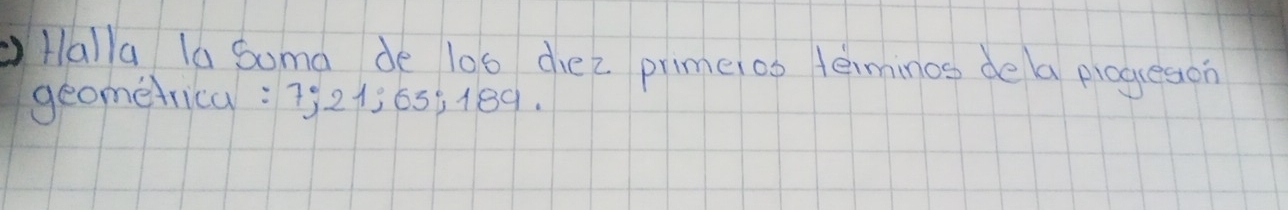 c) Halla la suma de los diez primeros términos de la progresión
geométrica : 7; 21; 63; 189.